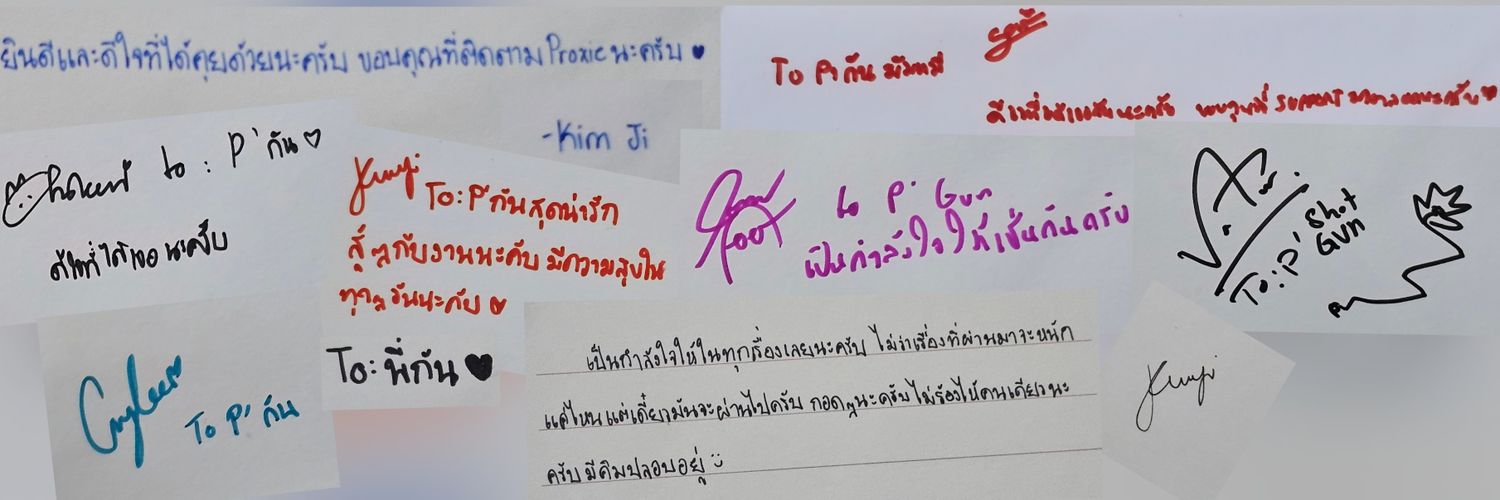 ยินดีและดีใจที่ได้คุยด้วยนะครับ ขอบคุณที่ติดตาม Proxie นะครับ ♥
-Kim Ji
To P'กัน
to : P'กัน ♡
ดีใจที่ได้เจอนะครับ
To: P'กันสุดน่ารัก
สู้ๆกับงานนะคับ มีความสุขใน
ทุกๆวันนะคับ ♡
to P' Gun
เป็นกำลังใจให้เช่นกันครับ
To: P' Shot
Gun
To P' กัน
To: พี่กัน ♥
เป็นกำลังใจให้ในทุกเรื่องเลยนะครับ ไม่ว่าเรื่องที่ผ่านมาจะหนัก
แค่ไหน แต่เดี๋ยวมันจะผ่านไปครับ กอดๆนะครับ ไม่ร้องไห้คนเดียวนะ
ครับ มีคิมปลอบอยู่